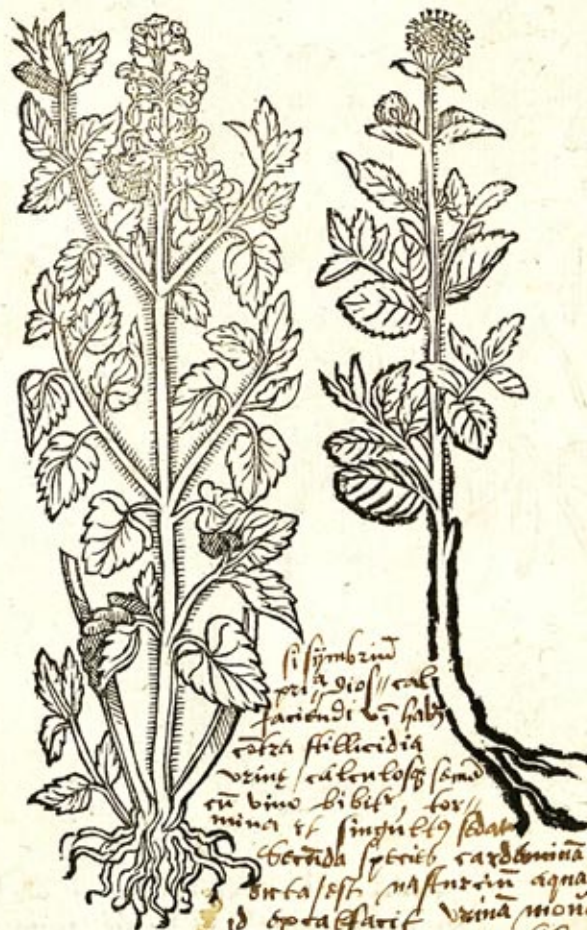 sisymbriū
pri͞a dios// cal
faciendi vī habȝ
cōtra stillicidia
vrinę / calculosqȝ semē
cū vino bibitr, tor//
mina et singultꝰ sedat
Secūda species cardaminā
dicta / est nasturciū aqua
id excalfacit vrinā mou